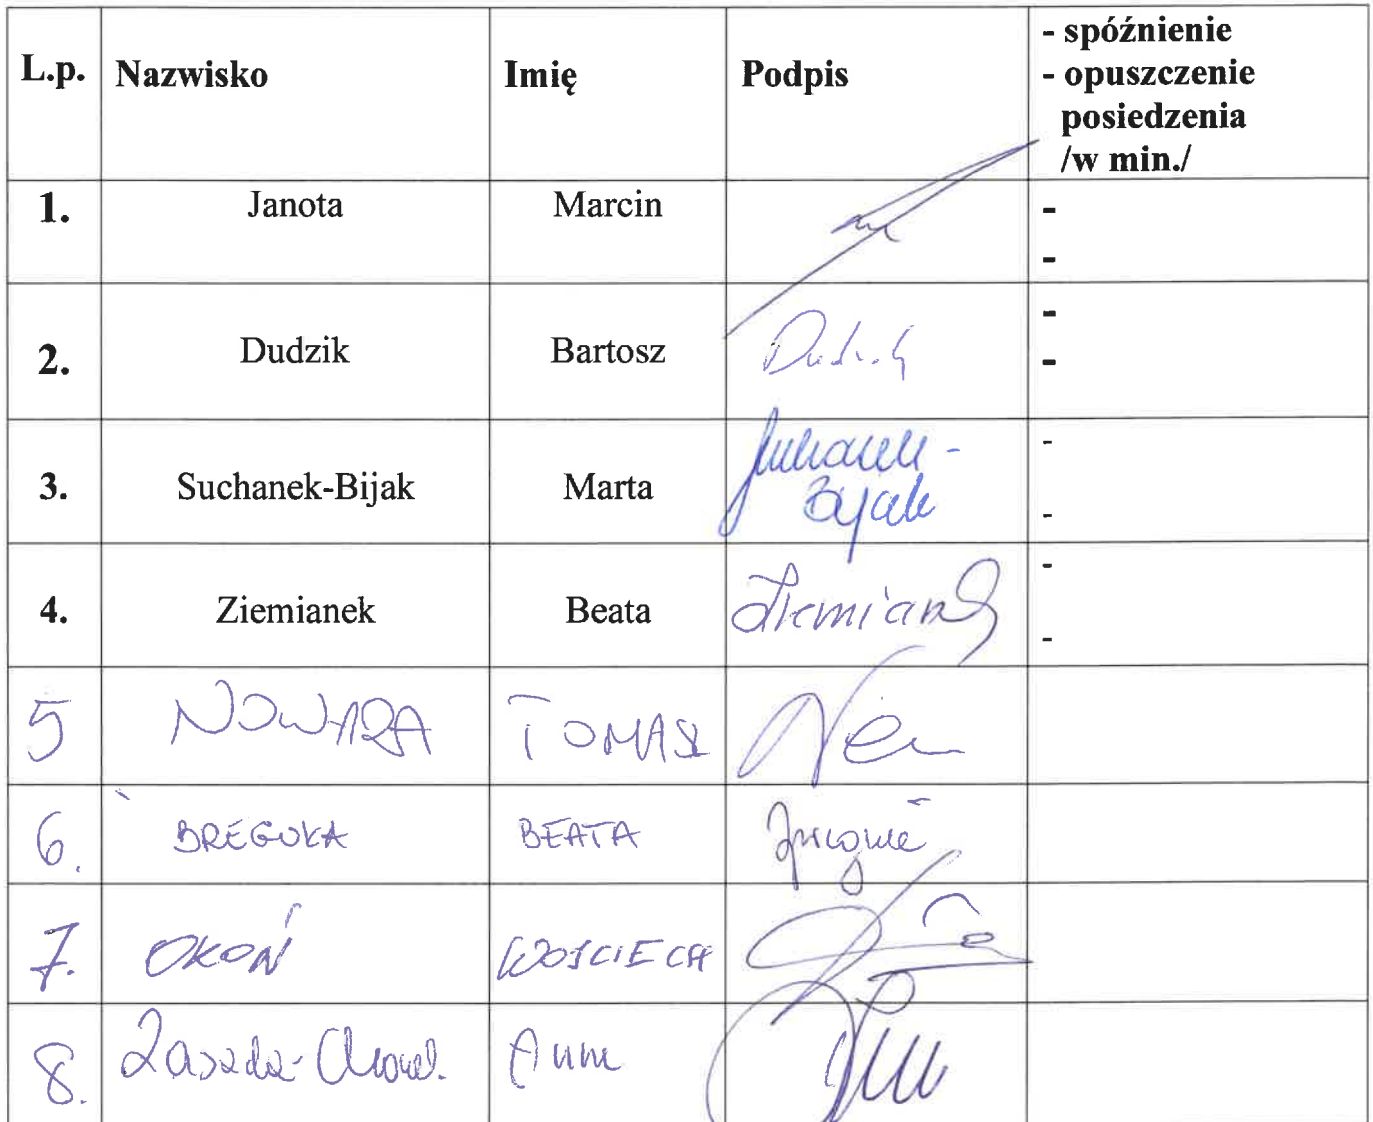 L.p. Nazwisko Imię Podpis - spóźnienie
- opuszczenie
posiedzenia
/w min./
1. Janota Marcin -
-
2. Dudzik Bartosz Dudzik -
-
3. Suchanek-Bijak Marta Suchanek- -
Bijak -
4. Ziemianek Beata Ziemianek -
-
5 NOWARA TOMASZ
6. BREGUŁA BEATA
7. OKOŃ WOJCIECH
8. Anna